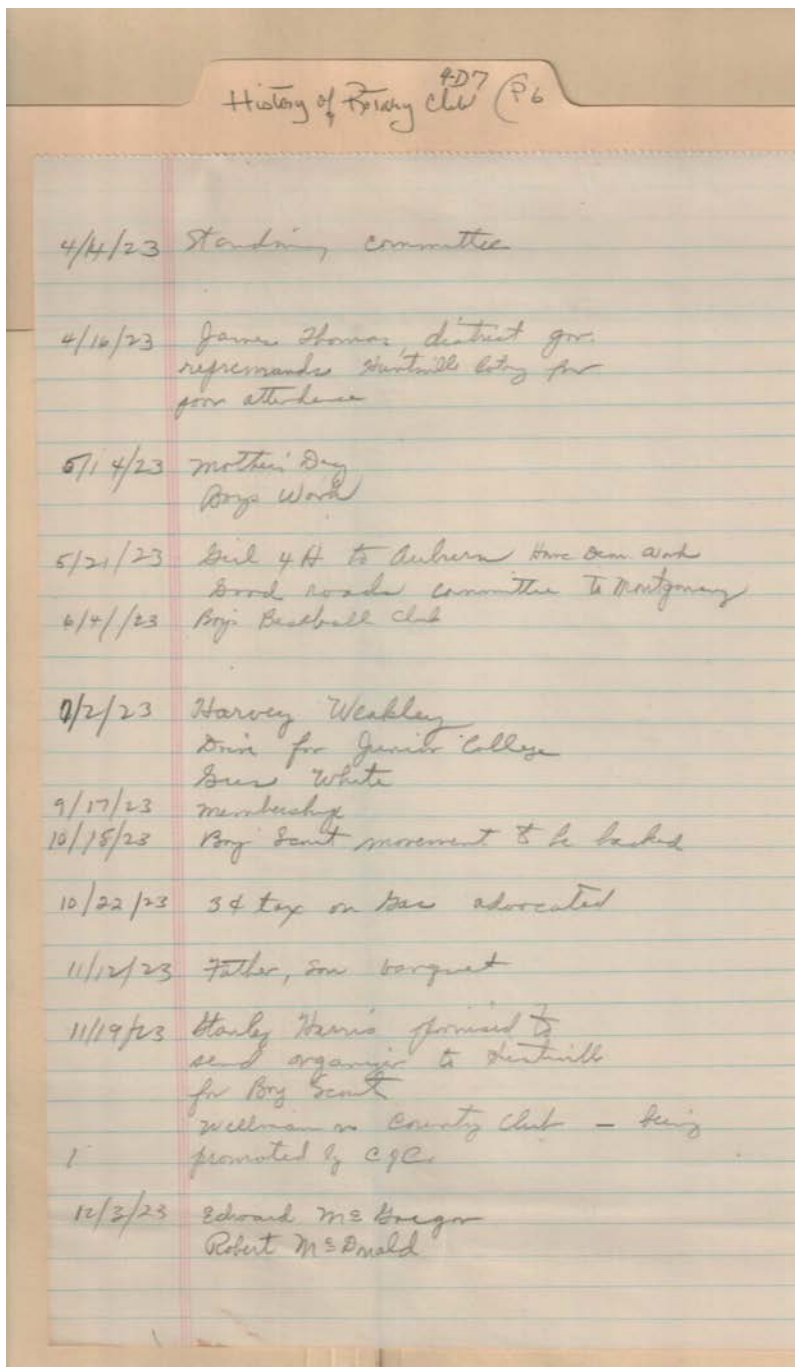 4-D7
History of Rotary Club (P6
4/4/23 Standing committee
4/16/23 James Thomas, district gov.
repremands Huntsville Rotary for
poor attendence
5/14/23 Mother's Day
Boys Work
5/21/23 Girl 4 H to Auburn Home Dem. Work
Good roads committee to Montgomery
6/4/23 Boy's Baseball Club
7/2/23 Harvey Weakley
Drive for Junior College
Gus White
9/17/23 membership
10/15/23 Boy Scout movement to be backed
10/22/23 3¢ tax on Gas advocated
11/12/23 Father, Son banquet
11/19/23 Stanley Harris promised to
send organizer to Huntsville
for Boy Scout
Wellman on County Club – being
promoted by C of C.
12/3/23 Edward McGregor
Robert McDonald